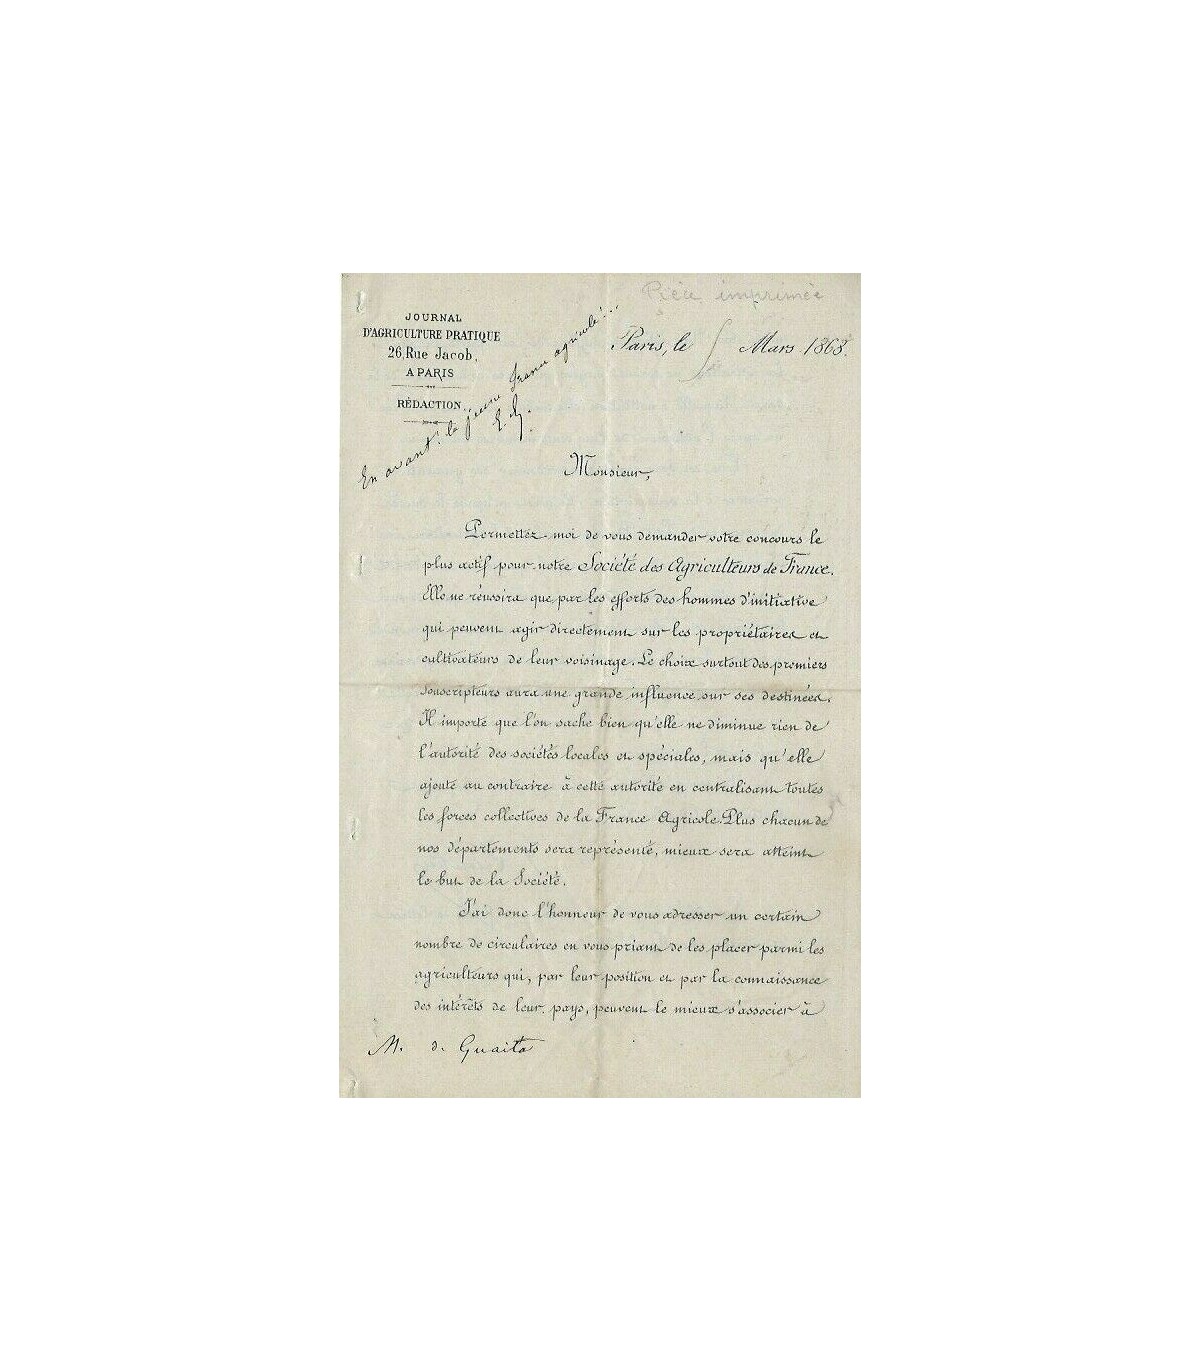 Pièce imprimée
JOURNAL
D'AGRICULTURE PRATIQUE
26, Rue Jacob,
A PARIS
RÉDACTION.
Paris, le Mars 1868.
En avant! la jeune France agricole!...
E. L.
Monsieur,
Permettez-moi de vous demander votre concours le
plus actif pour notre Société des Agriculteurs de France.
Elle ne réussira que par les efforts des hommes d'initiative
qui peuvent agir directement sur les propriétaires et
cultivateurs de leur voisinage. Le choix surtout des premiers
souscripteurs aura une grande influence sur ses destinées.
Il importe que l'on sache bien qu'elle ne diminue rien de
l'autorité des sociétés locales et spéciales, mais qu'elle
ajoute au contraire à cette autorité en centralisant toutes
les forces collectives de la France Agricole. Plus chacun de
nos départements sera représenté, mieux sera atteint
le but de la Société.
J'ai donc l'honneur de vous adresser un certain
nombre de circulaires en vous priant de les placer parmi les
agriculteurs qui, par leur position et par la connaissance
des intérêts de leur pays, peuvent le mieux s'associer à
M. de Guaita